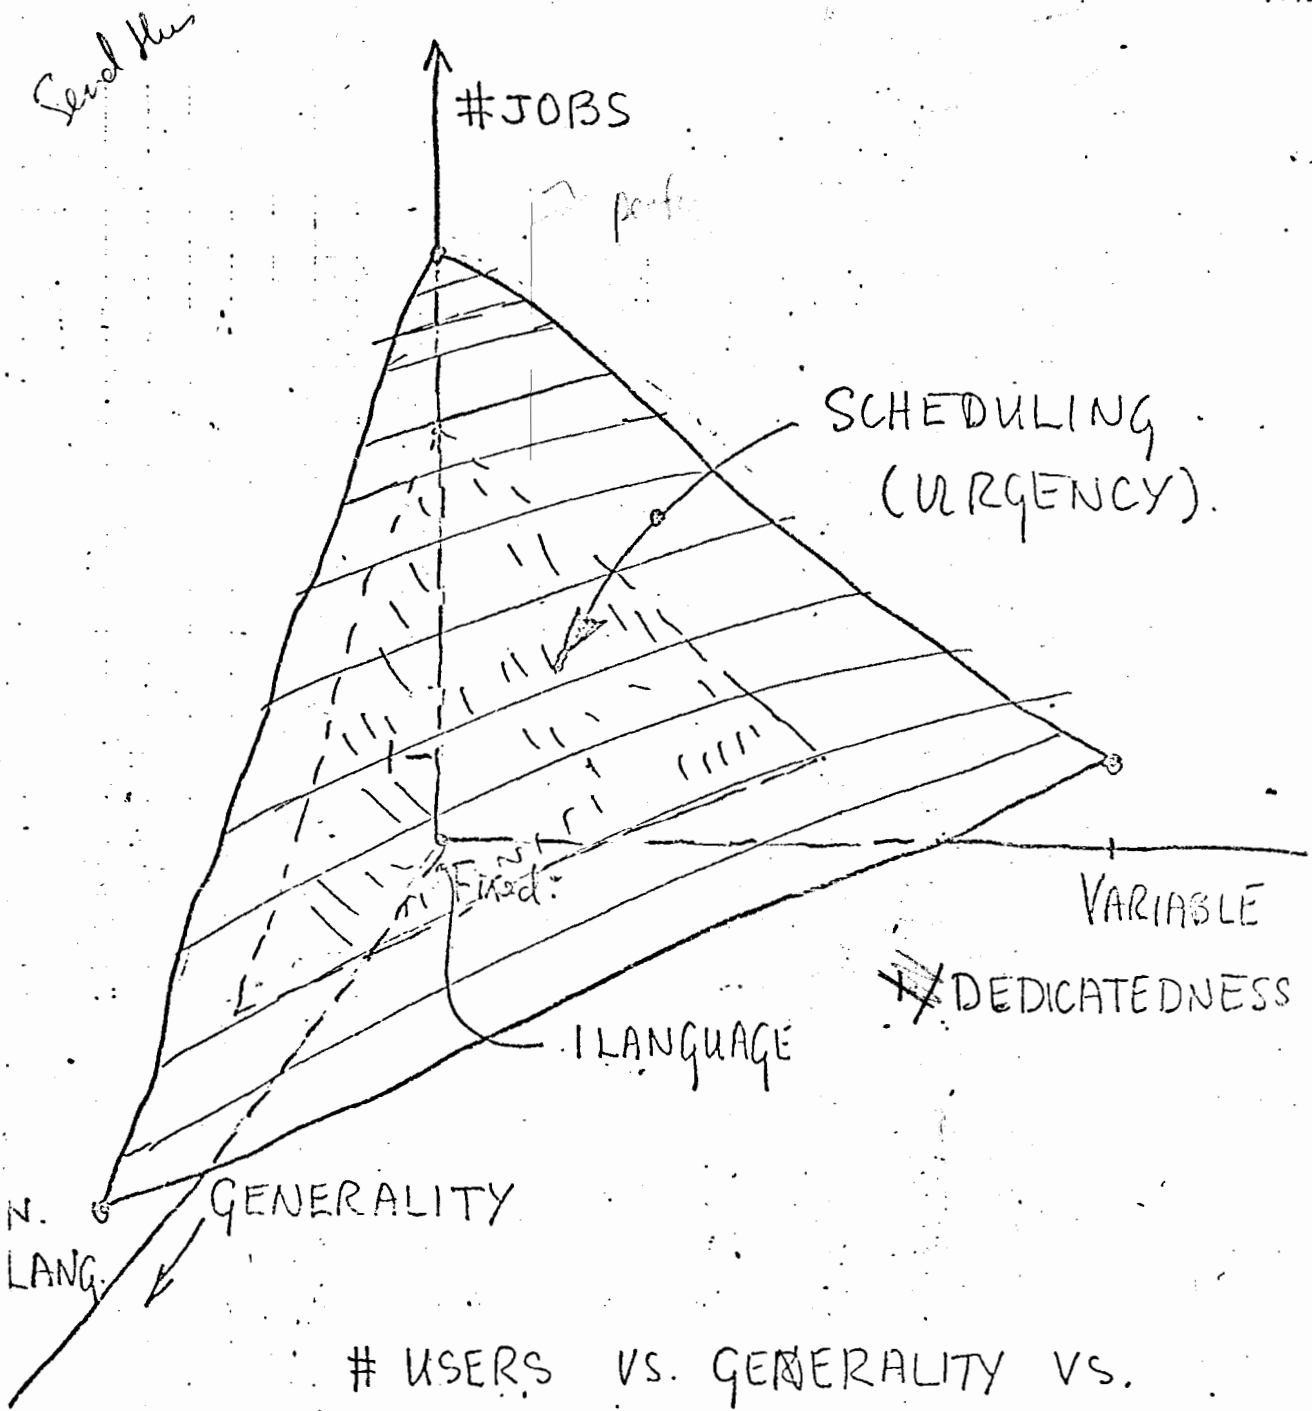 Send this
#JOBS
SCHEDULING
(URGENCY).
1
Fixed:
VARIABLE
DEDICATEDNESS
1 LANGUAGE
GENERALITY
N.
LANG.
# USERS VS. GENERALITY VS.